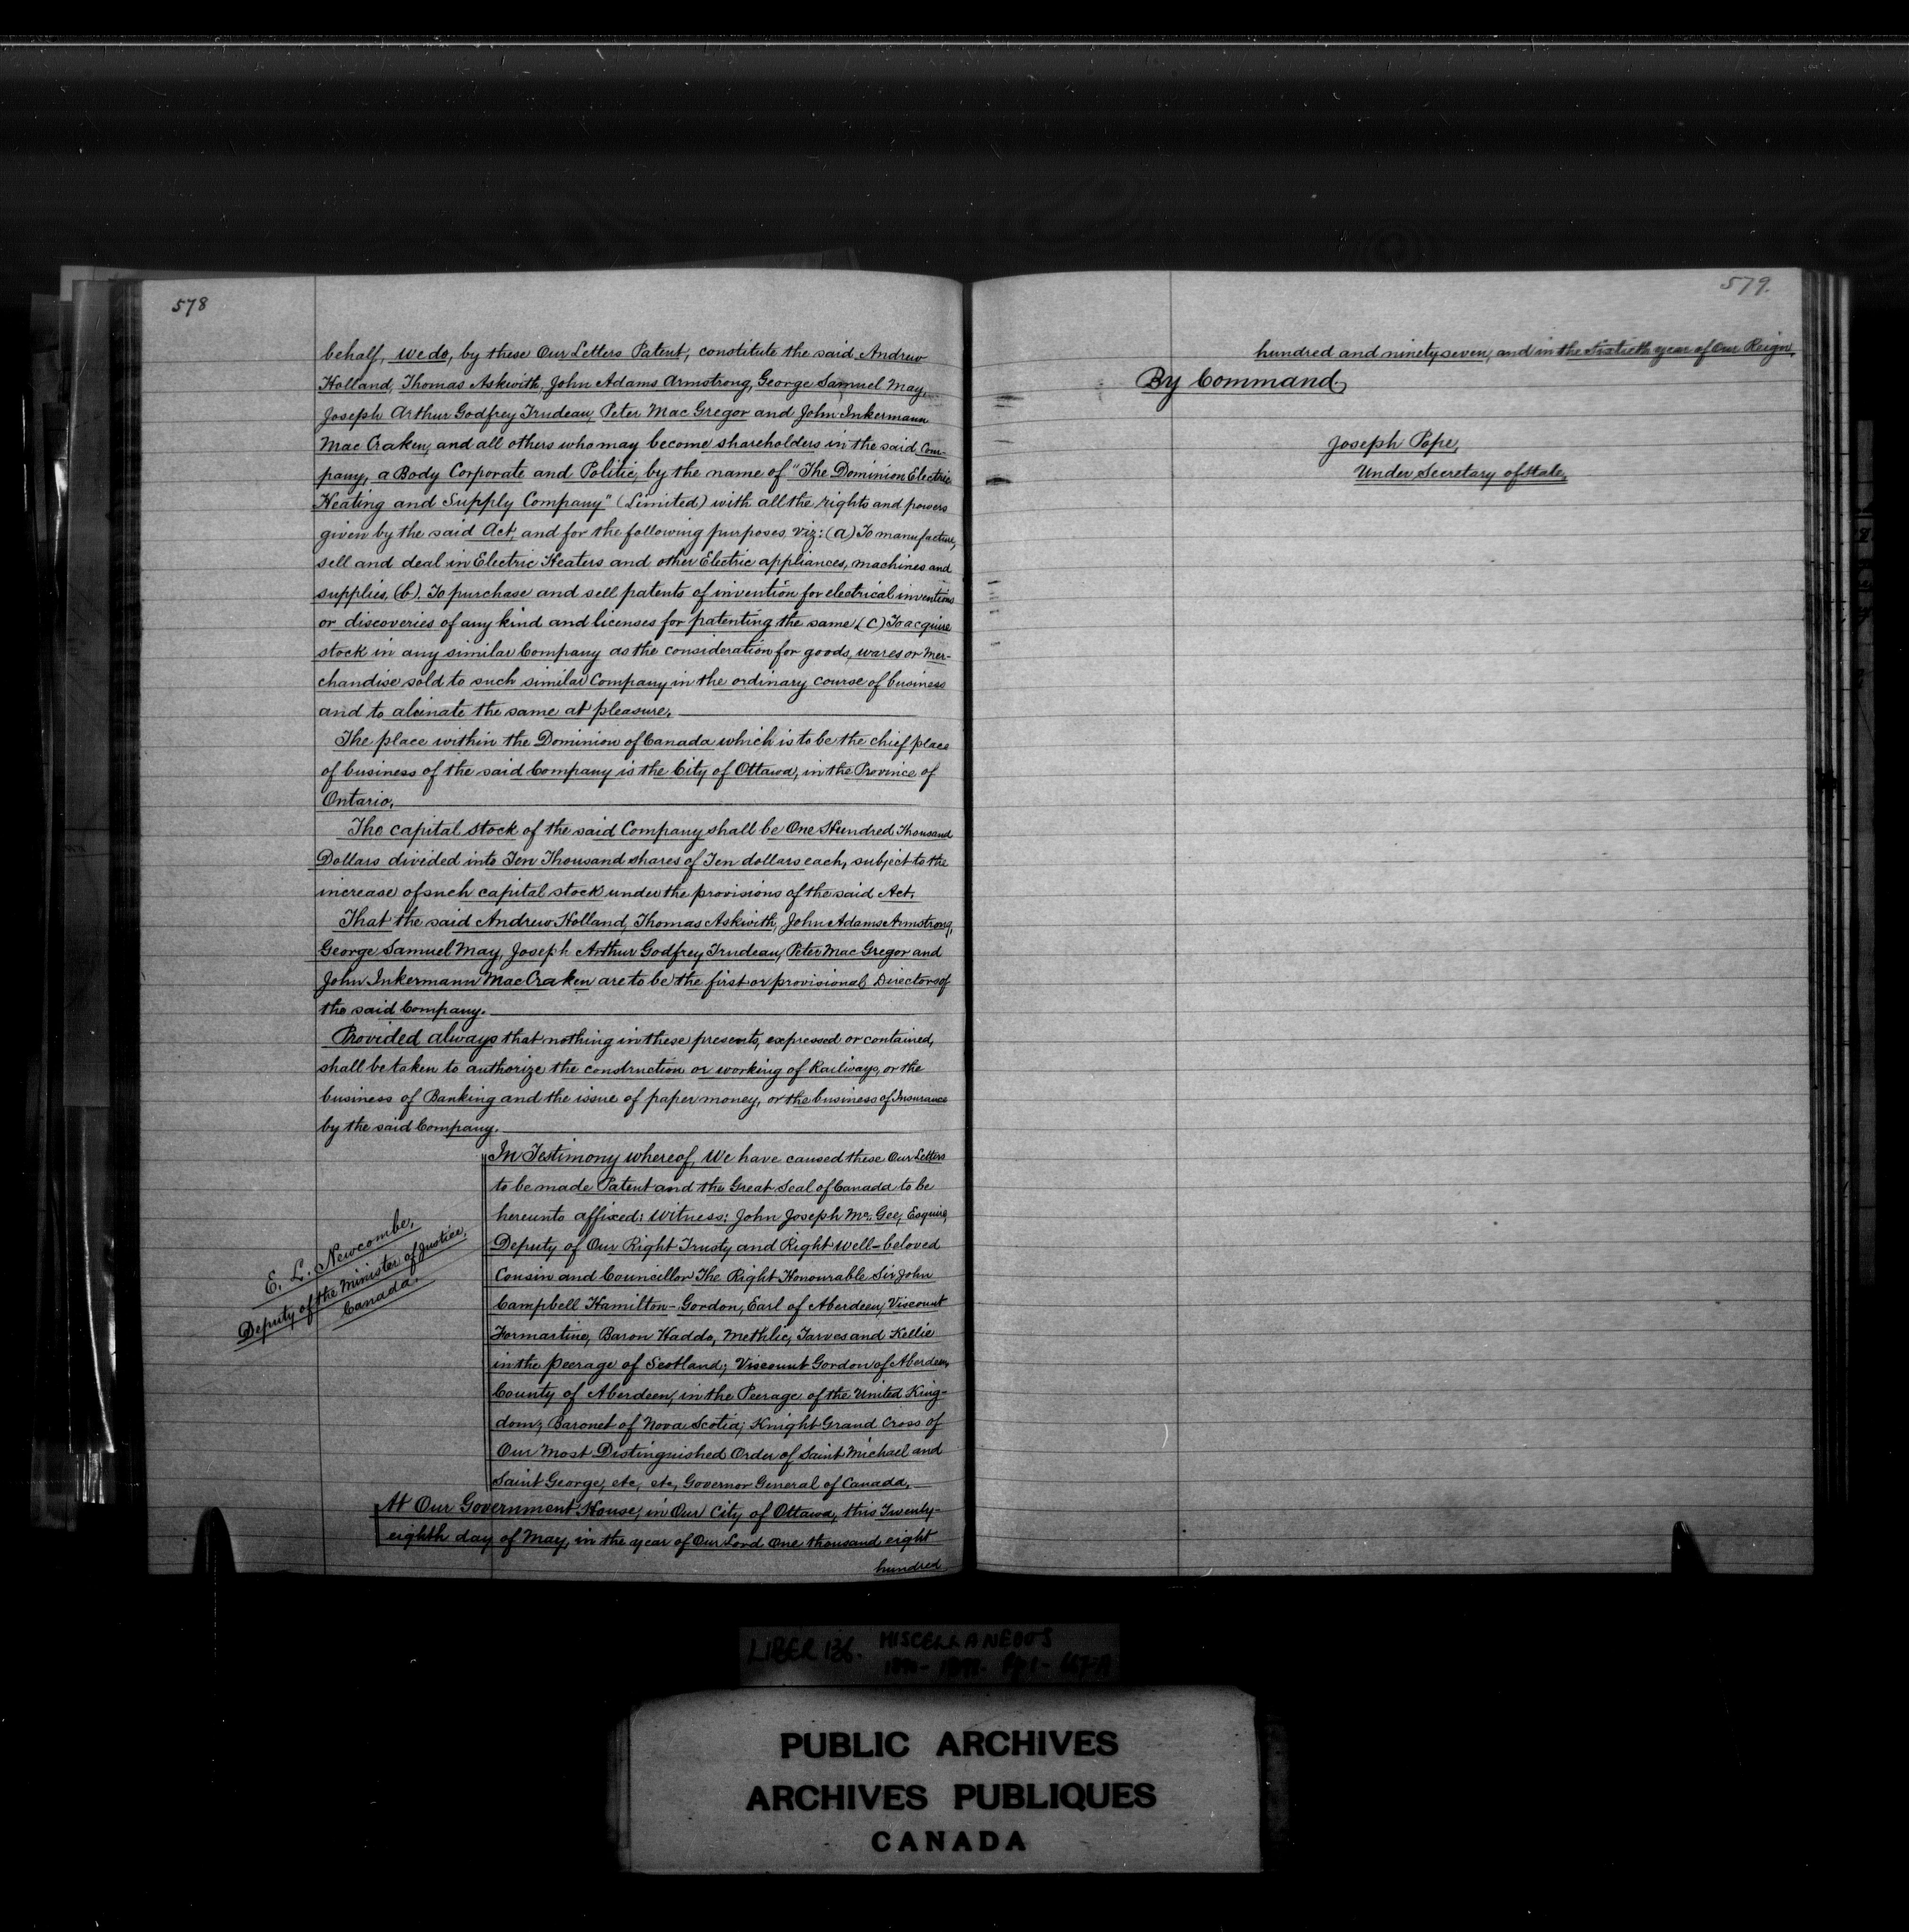 578
behalf, we do, by these Our Letters Patent, constitute the said Andrew
Holland, Thomas Askwith, John Adams Armstrong, George Samuel May,
Joseph Arthur Godfrey Trudeau, Peter Mac Gregor and John Inkermann
Mac Craken, and all others who may become shareholders in the said Com-
pany, a Body Corporate and Politic, by the name of "The Dominion Electric
Heating and Supply Company" (Limited) with all the rights and powers
given by the said Act, and for the following purposes viz: (a) To manufacture,
sell and deal in Electric Heaters and other Electric appliances, machines and
supplies, (b). To purchase and sell patents of invention for electrical inventions
or discoveries of any kind and licenses for patenting the same, (c) To acquire
stock in any similar Company as the consideration for goods, wares or mer-
chandise sold to such similar Company in the ordinary course of business
and to aleinate the same at pleasure.
The place within the Dominion of Canada which is to be the chief place
of business of the said Company is the City of Ottawa, in the Province of
Ontario.
The capital stock of the said Company shall be One Hundred Thousand
Dollars divided into Ten Thousand shares of Ten dollars each, subject to the
increase of such capital stock under the provisions of the said Act.
That the said Andrew Holland, Thomas Askwith, John Adams Armstrong,
George Samuel May, Joseph Arthur Godfrey Trudeau, Peter Mac Gregor and
John Inkermann Mac Craken are to be the first or provisional Directors of
the said Company.
Provided always that nothing in these presents, expressed or contained,
shall be taken to authorize the construction or working of Railways, or the
business of Banking and the issue of paper money, or the business of Insurance
by the said Company.
In Testimony whereof, We have caused these Our Letters
to be made Patent and the Great Seal of Canada to be
hereunto affixed: Witness: John Joseph Mc. Gee, Esquire,
Deputy of Our Right Trusty and Right well-beloved
Cousin and Councillor The Right Honourable Sir John
Campbell Hamilton-Gordon, Earl of Aberdeen, Viscount
Formartine, Baron Haddo, Methlic, Tarves and Kellie
in the peerage of Scotland; Viscount Gordon of Aberdeen,
County of Aberdeen, in the Peerage of the United King-
dom; Baronet of Nova Scotia; Knight Grand Cross of
Our Most Distinguished Order of Saint Michael and
Saint George, etc, etc, Governor General of Canada,
At Our Government House, in Our City of Ottawa, this Twenty-
eighth day of May, in the year of Our Lord One thousand eight
hundred
E. L. Newcombe,
Deputy of the Minister of Justice,
Canada.
579.
hundred and ninety seven, and in the Sixtieth year of Our Reign.
By Command,
Joseph Pope,
Under Secretary of State.
LIBER 136. MISCELLANEOUS
PUBLIC ARCHIVES
ARCHIVES PUBLIQUES
CANADA